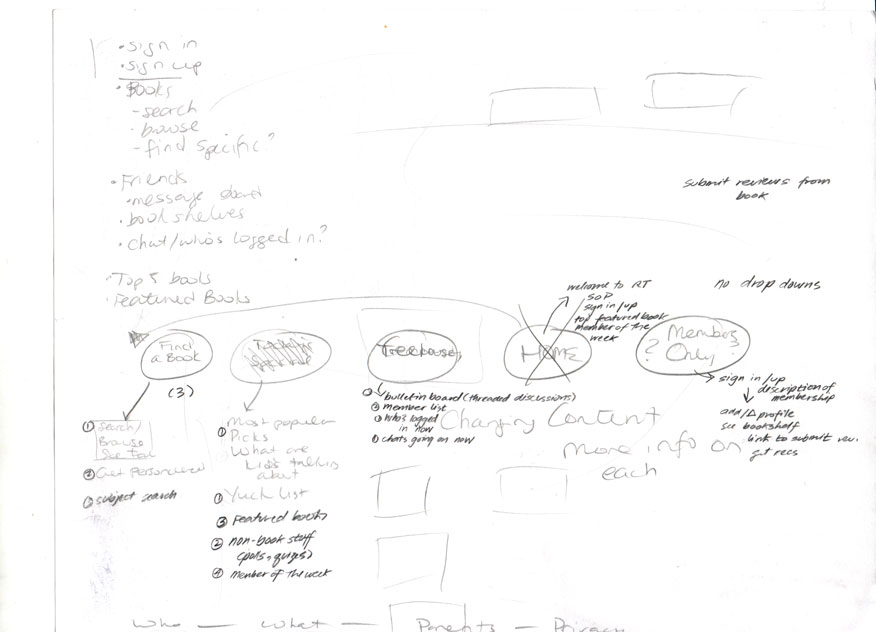 • sign in
• sign up
• Books
- search
• browse
- find specific?
• Friends
• message board
• bookshelves
• chat/who's logged in?
• Top 5 books
• Featured Books
submit reviews from
book
no drop downs
welcome to RT
SOP
sign in/up
top featured book
member of the
week
Find
a Book
Treehouse
HOME
Members
? Only ?
(3)
① Search/
Browse
See
② Get Personalized
① subject search
Most popular
① Picks
What are
kids talking
about
① Yuck List
③ Featured books
② non-book stuff
(polls, quizzes)
④ member of the week
bulletin board (threaded discussions)
② member list
② who's logged
in now
① chats going on now
Changing Content
More info on
each
sign in/up
description of
membership
add/Δ profile
see bookshelf
link to submit rev.
get recs
Who — What — Parents — Privacy